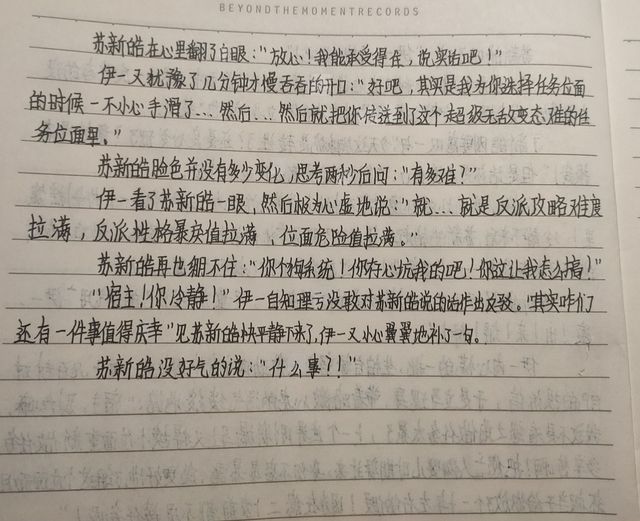 BEYONDTHEMOMENTRECORDS
苏新皓在心里翻了白眼：“放心！我能承受得住，说实话吧！”
伊一又犹豫了几分钟才慢吞吞的开口：“好吧，其实是我为你选择任务位面
的时候一不小心手滑了...然后...然后就把你传送到了这个超级无敌变态难的任
务位面里。”
苏新皓脸色并没有多少变化，思考两秒后问：“有多难？”
伊一看了苏新皓一眼，然后极为心虚地说：“就...就是反派攻略难度
拉满，反派性格暴戾值拉满，位面危险值拉满。”
苏新皓再也绷不住：“你个狗系统！你存心坑我的吧！你这让我怎么搞！”
“宿主！你冷静！”伊一自知理亏没敢对苏新皓说的话作出反驳。“其实咱们
还有一件事值得庆幸”见苏新皓快平静下来了，伊一又小心翼翼地补了一句。
苏新皓没好气的说：“什么事？！”